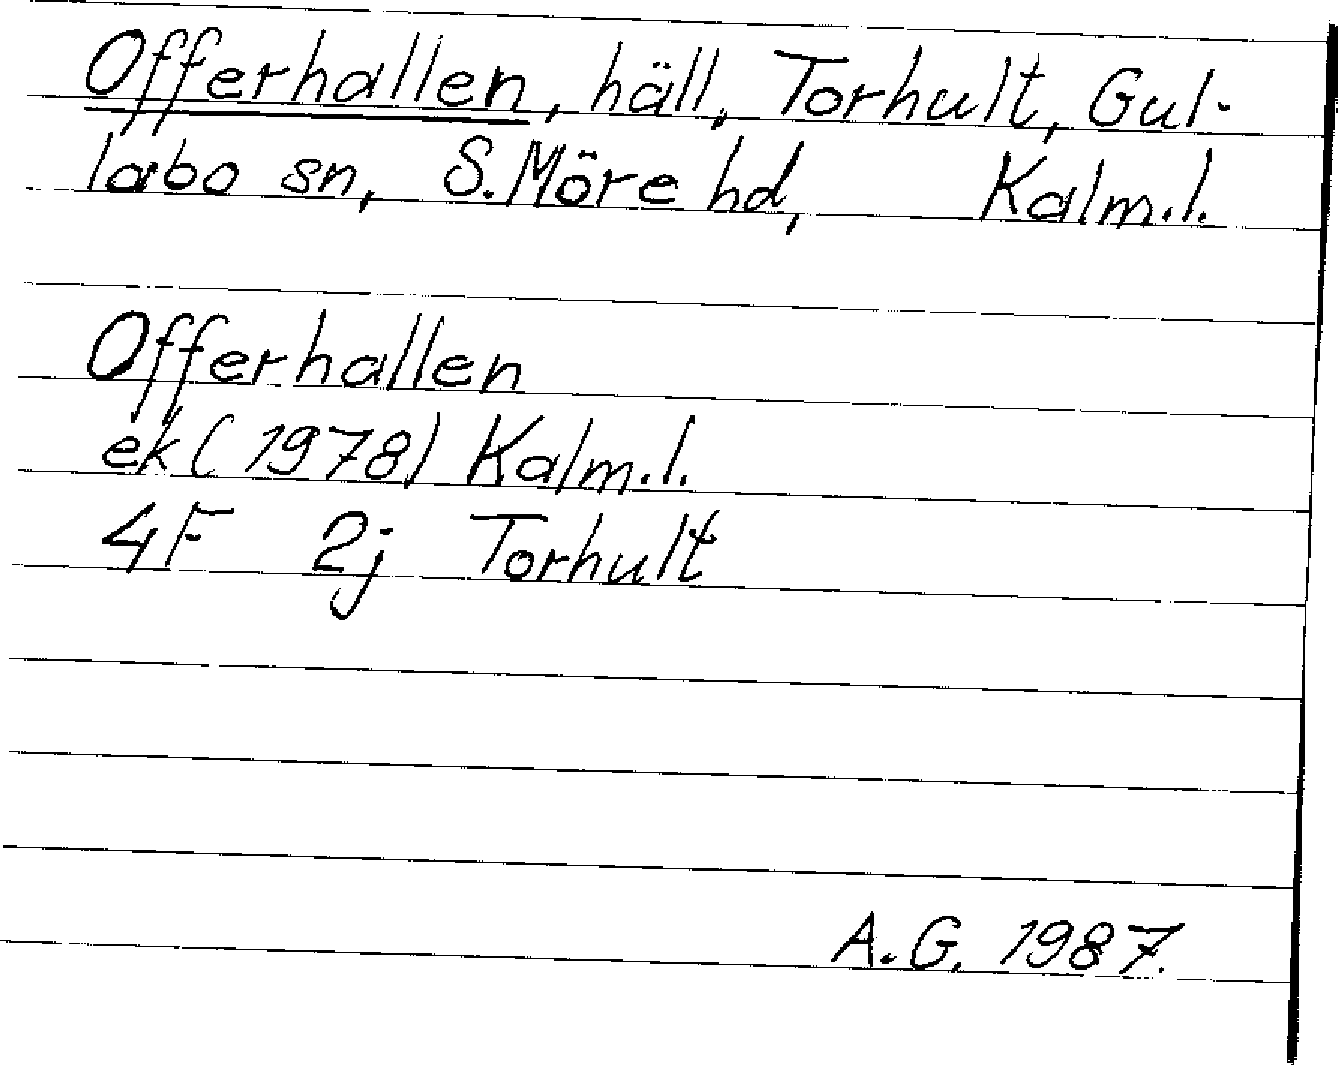 Offerhallen, häll, Torhult, Gul-
labo sn, S. Möre hd, Kalm.l.
Offerhallen
ek (1978) Kalm.l.
4F 2j Torhult
A.G. 1987.